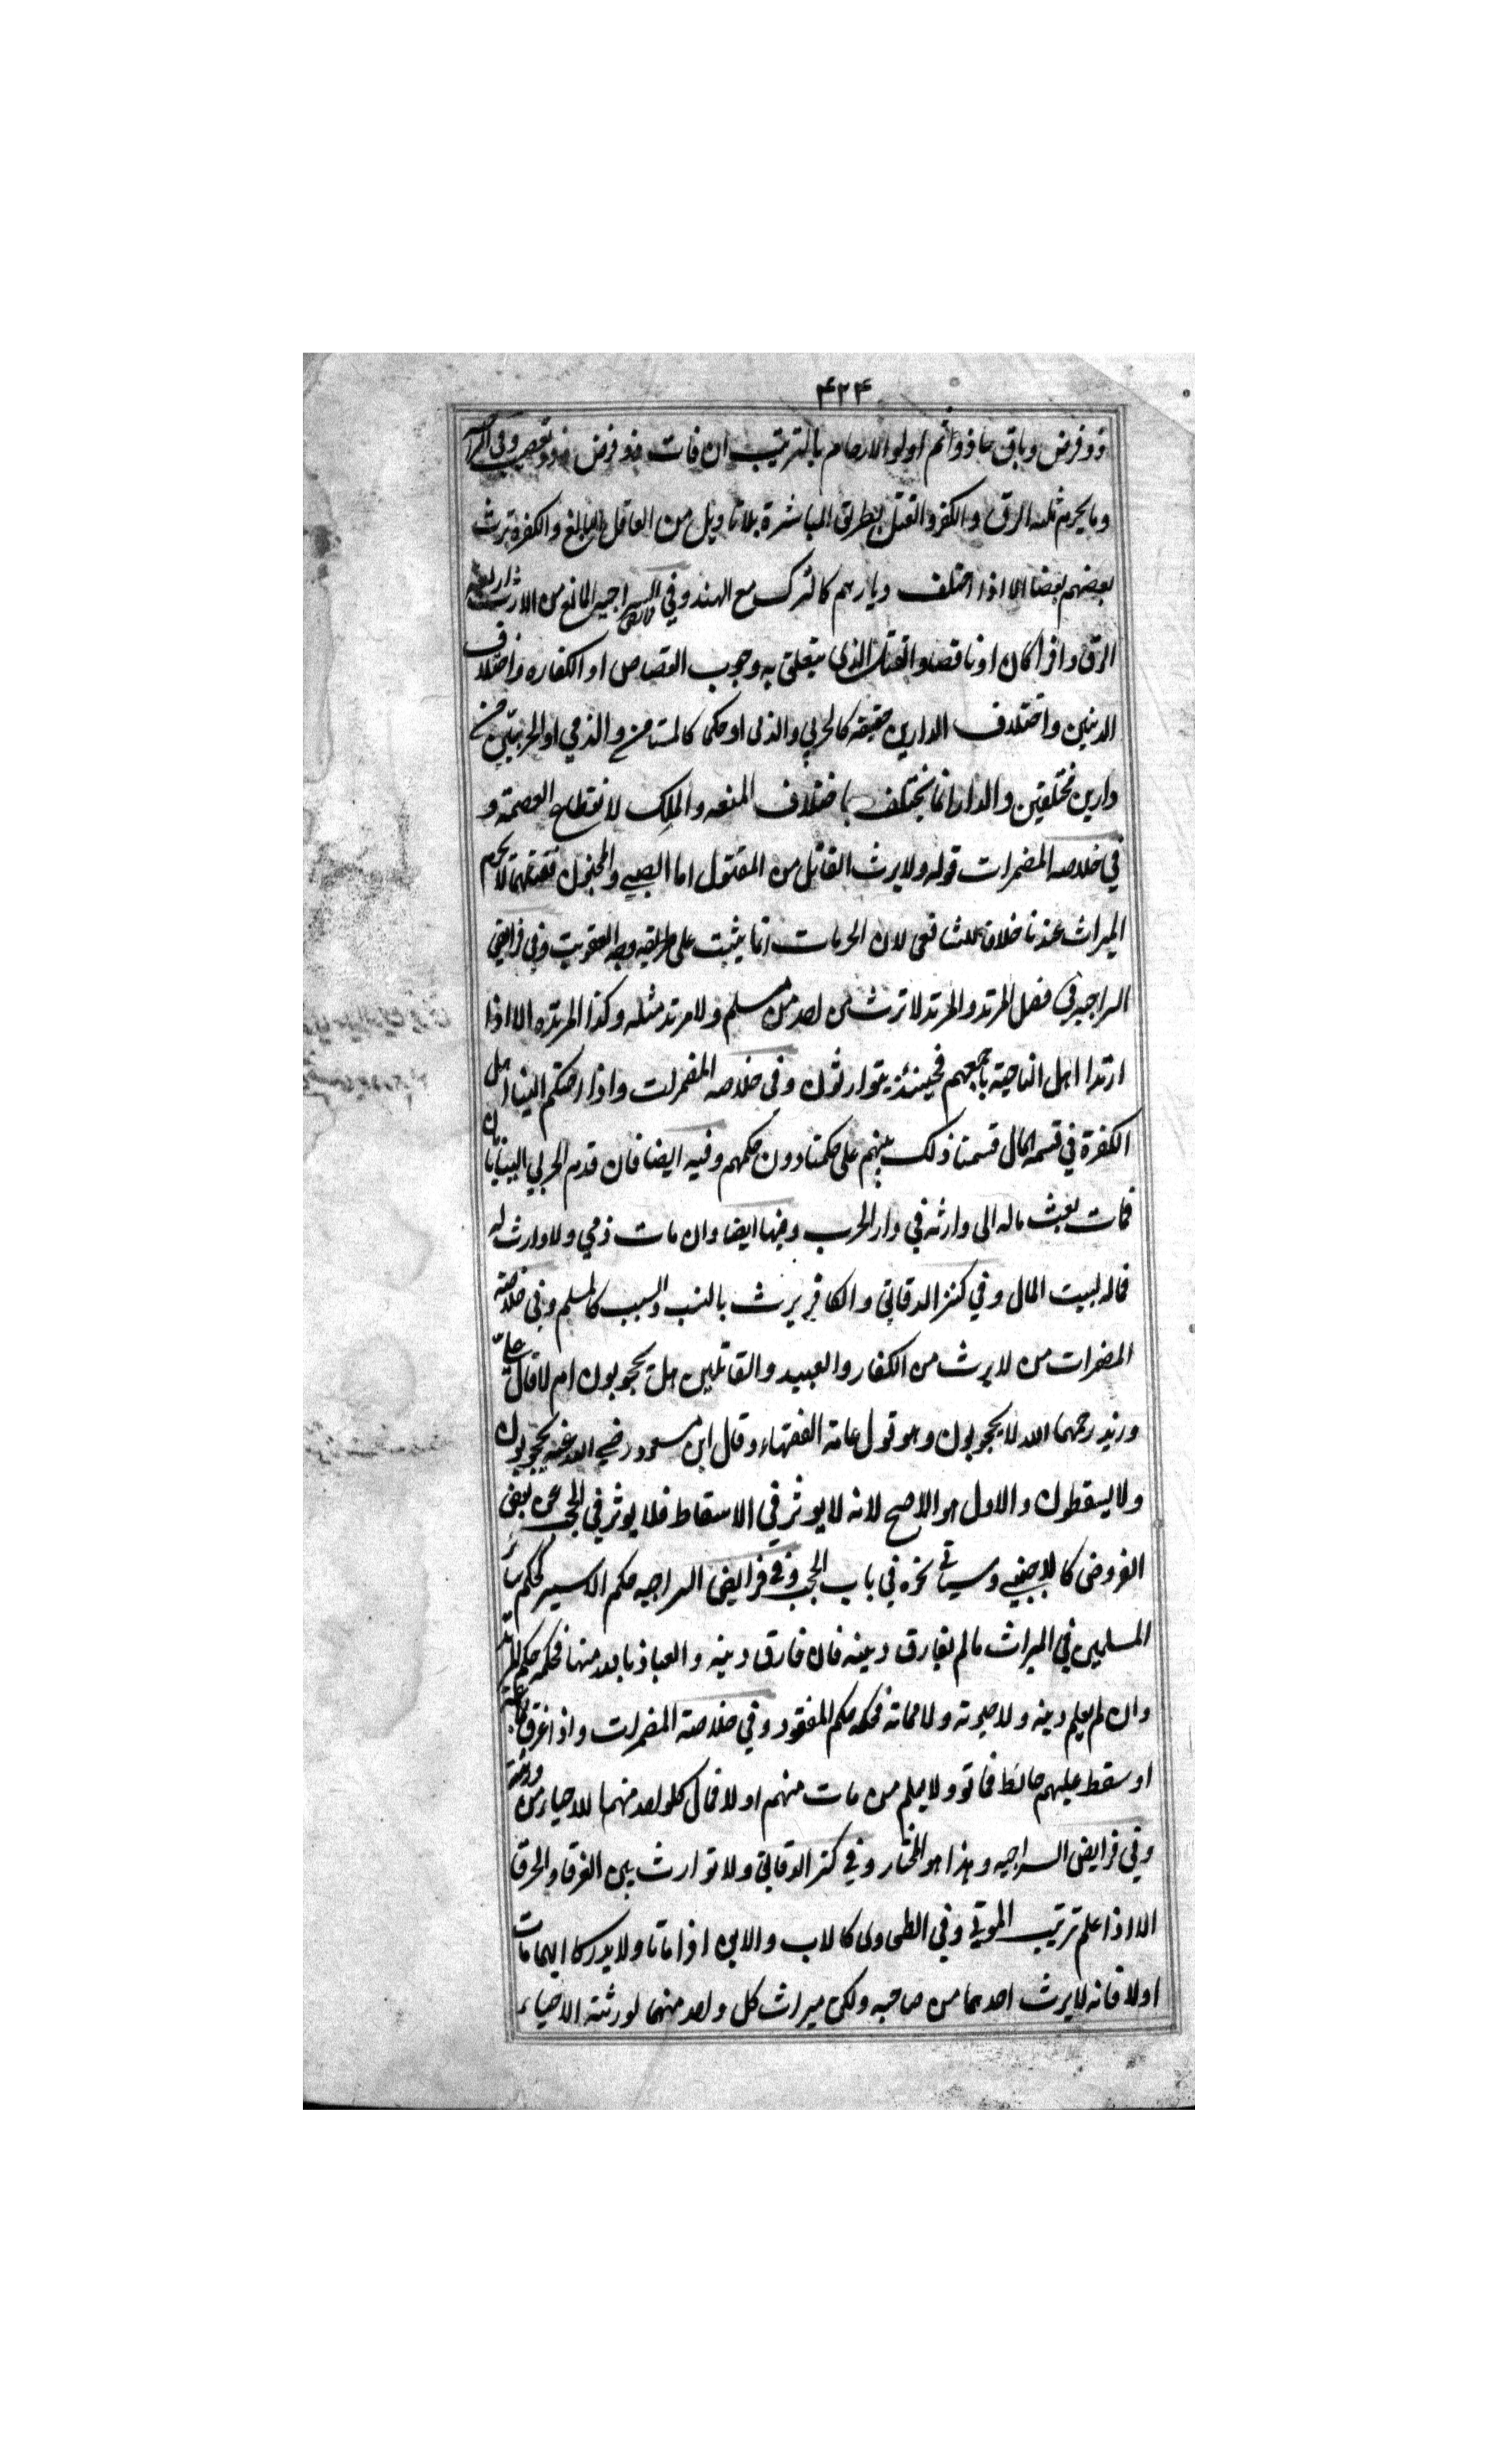 ۴۲۴
ذو فرض وباقى ما ذو اثم اولو الارحام بالترتيب ان فات ذو فرض وذو تعصيب وفى
وما يحرم ثلثه الرق والكفر والقتل بطريق المباشرة بلا تاويل من العاقل البالغ والكفرة ترث
بعضهم بعضا الا اذا اختلف ديارهم كالترك مع الهند وفي السراجية المانع من الارث اربعة
الرق وافرا كان او ناقصا والقتل الذى يتعلق به وجوب القصاص او الكفاره واختلاف
الدينين واختلاف الدارين حقيقة كالحربي والذمى او حكما كالمستامن والذمي او الحربيين من
دارين مختلفتين والدار انما يختلف باختلاف المنعه والملك لانقطاع العصمة و
في خلاصه المضمرات قوله ولا يرث القاتل من المقتول اما الصبي والمجنون فقتلهما لا يحرم
الميراث عندنا خلافا للشافعى لان الحرمات انما يثبت على طريقه وجه العقوبت وفي فرايض
السراجيه في فصل المرتد والمرتد لا ترث من احد من مسلم ولا مرتد مثله وكذا المرتده الا اذا
ارتدا اهل الناحية باجمعهم فحينئذ يتوارثون وفى خلاصه المضمرات واذا احتكم الينا اهل
الكفرة في قسمه المال قسمنا ذلك بينهم على حكمنا دون حكمهم وفيه ايضا فان قدم الحربي الينا بامان
فمات يبعث ماله الى وارثه في دار الحرب وفيها ايضا وان مات ذمي ولا وارث له
فماله لبيت المال وفي كنز الدقائق والكافر يرث بالنسب والسبب كالمسلم وفى خلاصة
المضمرات من لا يرث من الكفار والعبيد والقاتلين هل يحجبون ام لا قال على
وزيد رحمهما الله لا يحجبون وهو قول عامة الفقهاء وقال ابن مسعود رضي الله عنه يحجبون
ولا يسقطون والاول هو الاصح لانه لا يوثر في الاسقاط فلا يوثر في الحجب عن بعض
الفروض كالاجنبي وسياتي نحوه في باب الحجب وفي فرايض السراجيه حكم الاسير كحكم سائر
المسلمين في الميراث ما لم يفارق دينه فان فارق دينه والعياذ بالله منها فحكمه حكم المرتد
وان لم يعلم دينه ولا حيوته ولا مماته فحكمه حكم المفقود وفي خلاصة المضمرات واذا غرق جماعة
او سقط عليهم حائط فماتوا ولا يعلم من مات منهم اولا فمال كل واحد منهما للاحياء من ورثته
وفي فرايض السراجيه وهذا هو المختار وفي كنز الدقائق ولا توارث بين الغرقا والحرقا
الا اذا علم ترتيب الموتى وفي الطحاوى كالاب والابن اذا ماتا ولا يدركا ايهما مات
اولا فانه لا يرث احدهما من صاحبه ولكن ميراث كل واحد منهما لورثته الاحياء